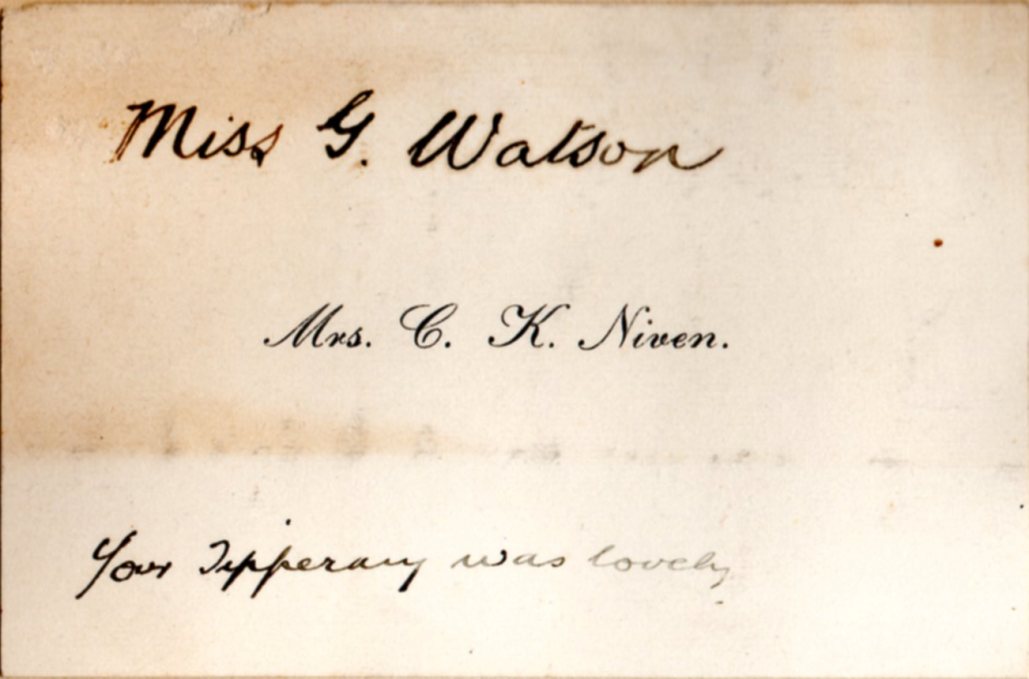 Miss G. Watson
Mrs. C. K. Niven.
Your Tipperary was lovely